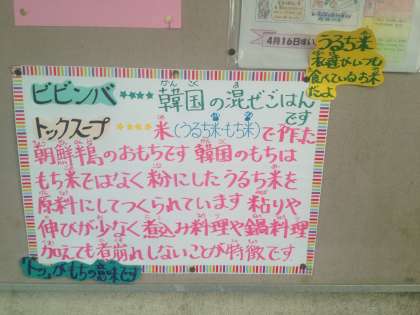 4月16日
うるち米
普段がいつも
食べているお米
だよ
ビビンバ ★★★★ 韓国の混ぜごはん
です
トックスープ ★★★★ 米(うるち米・もち米)で作った
朝鮮半島のおもちです 韓国のもちは
もち米ではなく粉にしたうるち米を
原料にしてつくられています 粘りや
伸びが少なく煮込み料理や鍋料理
に加えても煮崩れしないことが特徴です
トックがもちの意味です